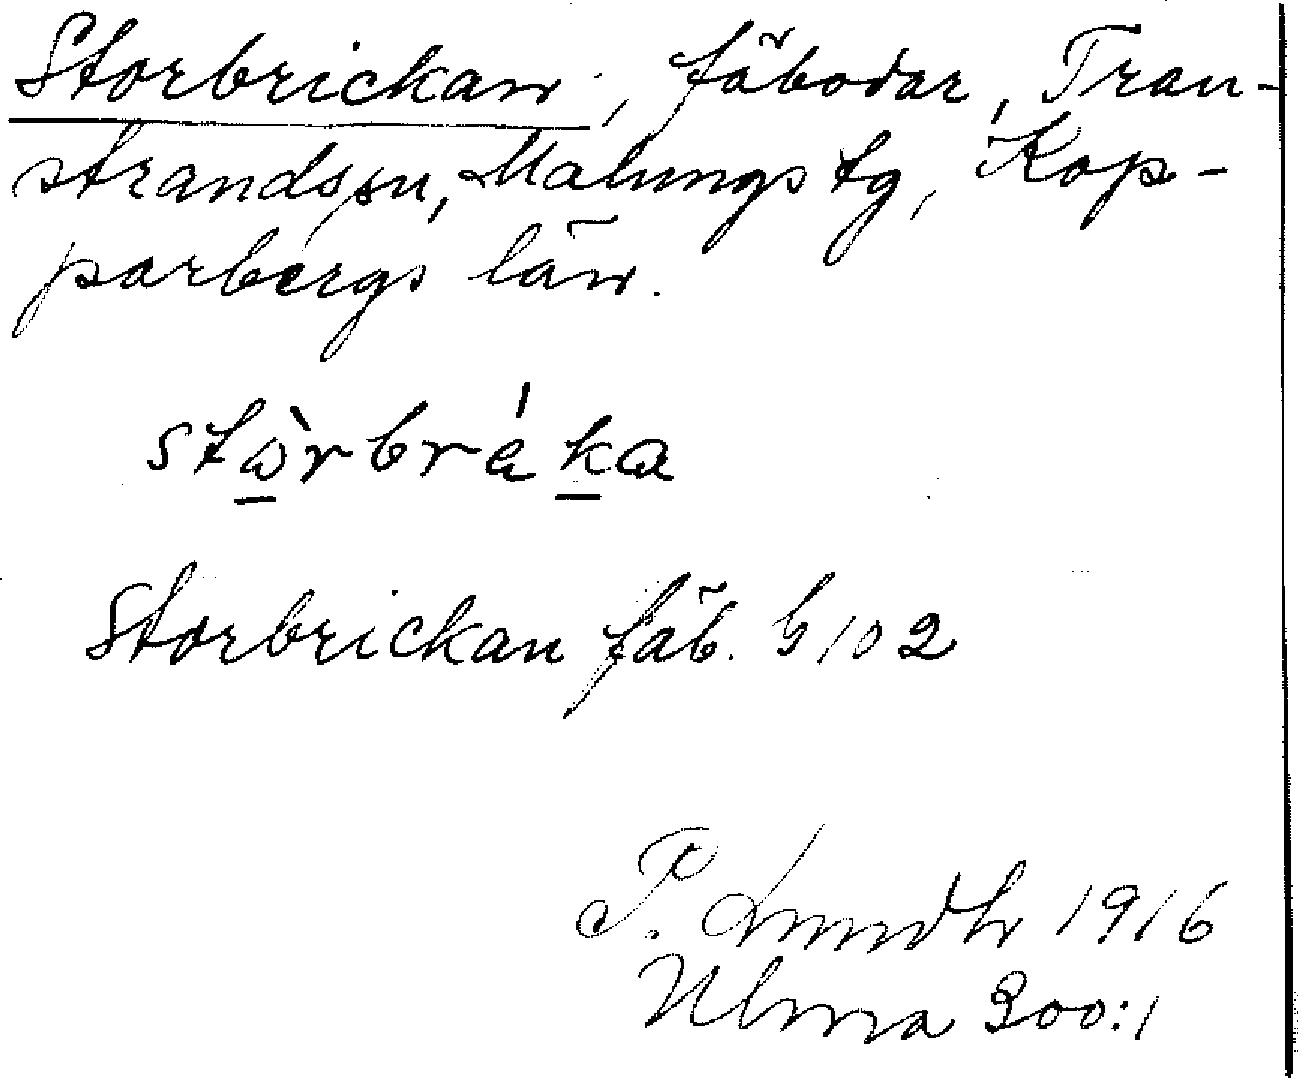 Storbrickan, fäbodar, Tran-
strands sn, Malungs tg, Kop-
parbergs län.
stὼrbráka
Storbrickan fäb. G 102
P. Lundh 1916
Ulma 300:1